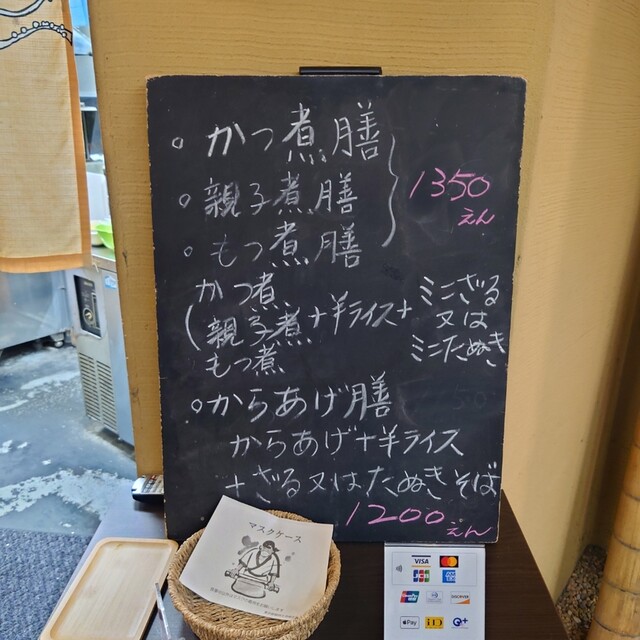 。かつ煮膳
。親子煮膳
。もつ煮膳
1350
えん
かつ煮
親子煮
もつ煮
+半ライス+
ミニざる
又は
ミニたぬき
。からあげ膳
からあげ+半ライス
+ざる又はたぬきそば
1200
えん
マスクケース
VISA
JCB
DISCOVER
Pay
iD